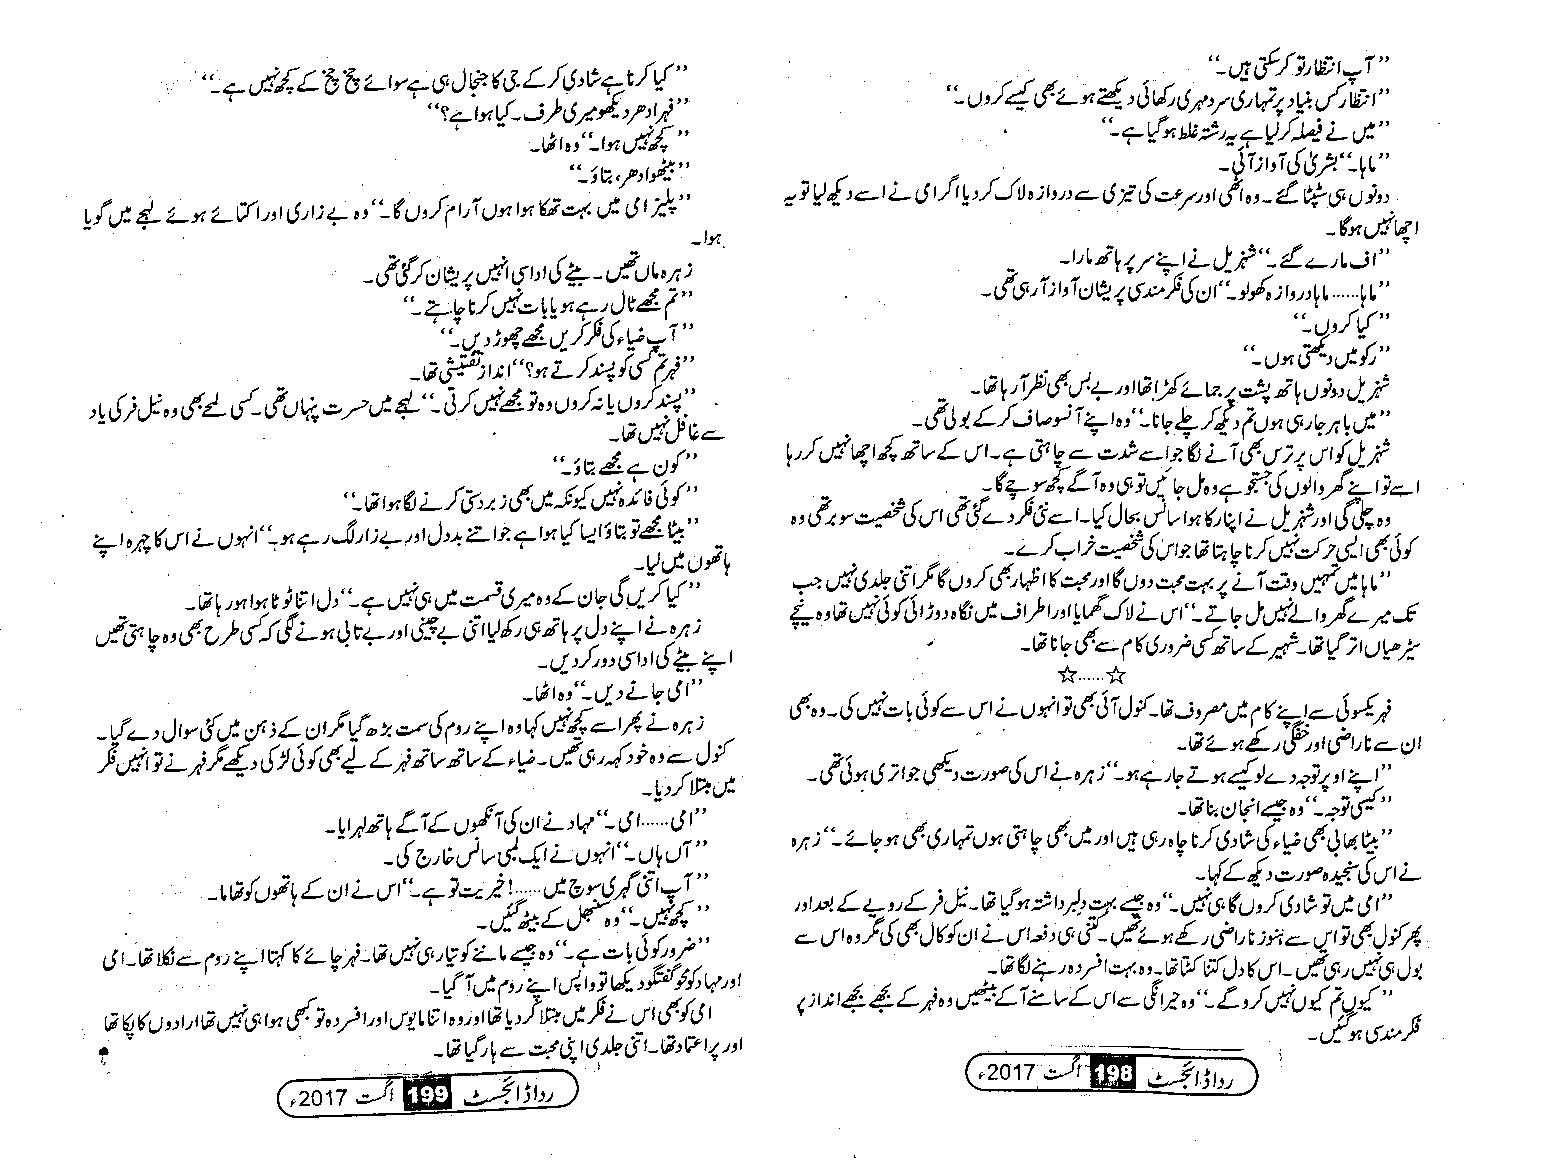 ’’آپ انتظار تو کرسکتی ہیں۔‘‘
’’انتظار کس بنیاد پر تمہاری سردمہری رکھائی دیکھتے ہوئے بھی کیسے کروں۔‘‘
’’میں نے فیصلہ کرلیا ہے یہ رشتہ غلط ہوگیا ہے۔‘‘
’’ماہا۔‘‘ بشریٰ کی آواز آئی۔
دونوں ہی سٹپٹا گئے۔ وہ اٹھی اور سرعت کی تیزی سے دروازہ لاک کردیا اگر امی نے اسے دیکھ لیا تو یہ
اچھا نہیں ہوگا۔
’’اف مارے گئے۔‘‘ شہزیل نے اپنے سر پر ہاتھ مارا۔
’’ماہا......ماہا دروازہ کھولو۔‘‘ ان کی فکرمندی پریشان آواز آرہی تھی۔
’’کیا کروں۔‘‘
’’رکو میں دیکھتی ہوں۔‘‘
شہزیل دونوں ہاتھ پشت پر جمائے کھڑا تھا اور بے بس بھی نظر آرہا تھا۔
’’میں باہر جارہی ہوں تم دیکھ کر چلے جانا۔‘‘ وہ اپنے آنسو صاف کرکے بولی تھی۔
شہزیل کو اس پر ترس بھی آنے لگا جو اسے شدت سے چاہتی ہے۔ اس کے ساتھ کچھ اچھا نہیں کررہا
اسے تو اپنے گھر والوں کی جستجو ہے وہ مل جائیں تو ہی وہ آگے کچھ سوچے گا۔
وہ چلی گی اور شہزیل نے اپنا رکا ہوا سانس بحال کیا۔ اسے نئی فکر دے گئی تھی اس کی شخصیت سوبر تھی وہ
کوئی بھی ایسی حرکت نہیں کرنا چاہتا تھا جو اس کی شخصیت خراب کرے۔
’’ماہا میں تمہیں وقت آنے پر بہت محبت دوں گا اور محبت کا اظہار بھی کروں گا مگر اتنی جلدی نہیں جب
تک میرے گھر والے نہیں مل جاتے۔‘‘ اس نے لاک گھمایا اور اطراف میں نگاہ دوڑائی کوئی نہیں تھا وہ نیچے
سیڑھیاں اتر گیا تھا۔ شہیر کے ساتھ کسی ضروری کام سے بھی جانا تھا۔
☆......☆
فہر یکسوئی سے اپنے کام میں مصروف تھا۔ کنول آئی بھی تو انہوں نے اس سے کوئی بات نہیں کی۔ وہ بھی
ان سے ناراضی اور خفگی رکھے ہوئے تھا۔
’’اپنے اوپر توجہ دے لو کیسے ہوتے جارہے ہو۔‘‘ زہرہ نے اس کی صورت دیکھی جو اتری ہوئی تھی۔
’’کیسی توجہ۔‘‘ وہ جیسے انجان بنا تھا۔
’’بیٹا بھابی بھی ضیاء کی شادی کرنا چاہ رہی ہیں اور میں بھی چاہتی ہوں تمہاری بھی ہوجائے۔‘‘ زہرہ
نے اس کی سنجیدہ صورت دیکھ کے کہا۔
’’امی میں تو شادی کروں گا ہی نہیں۔‘‘ وہ جیسے بہت دلبرداشتہ ہوگیا تھا۔ نیل فر کے رویے کے بعد اور
پھر کنول بھی تو اس سے ہنوز ناراضی رکھے ہوئے تھیں۔ کتنی ہی دفعہ اس نے ان کو کال بھی کی مگر وہ اس سے
بول ہی نہیں رہی تھیں۔ اس کا دل کتنا کٹتا تھا۔ وہ بہت افسردہ رہنے لگا تھا۔
’’کیوں تم کیوں نہیں کروگے۔‘‘ وہ حیرانگی سے اس کے سامنے آکے بیٹھیں وہ فہر کے بجھے بجھے انداز پر
فکرمندی ہوگئیں۔
رداڈائجسٹ 198 اگست 2017ء
’’کیا کرنا ہے شادی کرکے جی کا جنجال ہی ہے سوائے چخ چخ کے کچھ نہیں ہے۔‘‘
’’فہر ادھر دیکھو میری طرف۔ کیا ہوا ہے؟‘‘
’’کچھ نہیں ہوا۔‘‘ وہ اٹھا۔
’’بیٹھو ادھر، بتاؤ۔‘‘
’’پلیز امی میں بہت تھکا ہوا ہوں آرام کروں گا۔‘‘ وہ بے زاری اور اکتائے ہوئے لہجے میں گویا
ہوا۔
زہرہ ماں تھیں۔ بیٹے کی اداسی انہیں پریشان کرگئی تھی۔
’’تم مجھے ٹال رہے ہو یا بات نہیں کرنا چاہتے۔‘‘
’’آپ ضیاء کی فکر کریں مجھے چھوڑ دیں۔‘‘
’’فہر تم کسی کو پسند کرتے ہو؟‘‘ انداز تفتیشی تھا۔
’’پسند کروں یا نہ کروں وہ تو مجھے نہیں کرتی۔‘‘ لہجے میں حسرت پنہاں تھی۔ کسی لمحے بھی وہ نیل فر کی یاد
سے غافل نہیں تھا۔
’’کون ہے مجھے بتاؤ۔‘‘
’’کوئی فائدہ نہیں کیونکہ میں بھی زبردستی کرنے لگا ہوا تھا۔‘‘
’’بیٹا مجھے تو بتاؤ ایسا کیا ہوا ہے جو اتنے بددل اور بے زار لگ رہے ہو۔‘‘ انہوں نے اس کا چہرہ اپنے
ہاتھوں میں لیا۔
’’کیا کریں گی جان کے وہ میری قسمت میں ہی نہیں ہے۔‘‘ دل اتنا ٹوٹا ہوا ہورہا تھا۔
زہرہ نے اپنے دل پر ہاتھ ہی رکھ لیا اتنی بے چینی اور بے تابی ہونے لگی کہ کسی طرح بھی وہ چاہتی تھیں
اپنے بیٹے کی اداسی دور کردیں۔
’’امی جانے دیں۔‘‘ وہ اٹھا۔
زہرہ نے پھر اسے کچھ نہیں کہا وہ اپنے روم کی سمت بڑھ گیا مگر ان کے ذہن میں کئی سوال دے گیا۔
کنول سے وہ خود کہہ رہی تھیں۔ ضیاء کے ساتھ ساتھ فہر کے لیے بھی کوئی لڑکی دیکھے مگر فہر نے تو انہیں فکر
میں مبتلا کردیا۔
’’امی......امی۔‘‘ مہاد نے ان کی آنکھوں کے آگے ہاتھ لہرایا۔
’’آں ہاں۔‘‘ انہوں نے ایک لمبی سانس خارج کی۔
’’آپ اتنی گہری سوچ میں......! خیریت تو ہے۔‘‘ اس نے ان کے ہاتھوں کو تھاما۔
’’کچھ نہیں۔‘‘ وہ سنبھل کے بیٹھ گئیں۔
’’ضرور کوئی بات ہے۔‘‘ وہ جیسے ماننے کو تیار ہی نہیں تھا۔ فہر چائے کا کہتا اپنے روم سے نکلا تھا۔ امی
اور مہاد کو محو گفتگو دیکھا تو واپس اپنے روم میں آگیا۔
امی کو بھی اس نے فکر میں مبتلا کردیا تھا اور وہ اتنا مایوس اور افسردہ تو کبھی ہوا ہی نہیں تھا ارادوں کا پکا تھا
اور پراعتماد تھا۔ اتنی جلدی اپنی محبت سے ہار گیا تھا۔
رداڈائجسٹ 199 اگست 2017ء